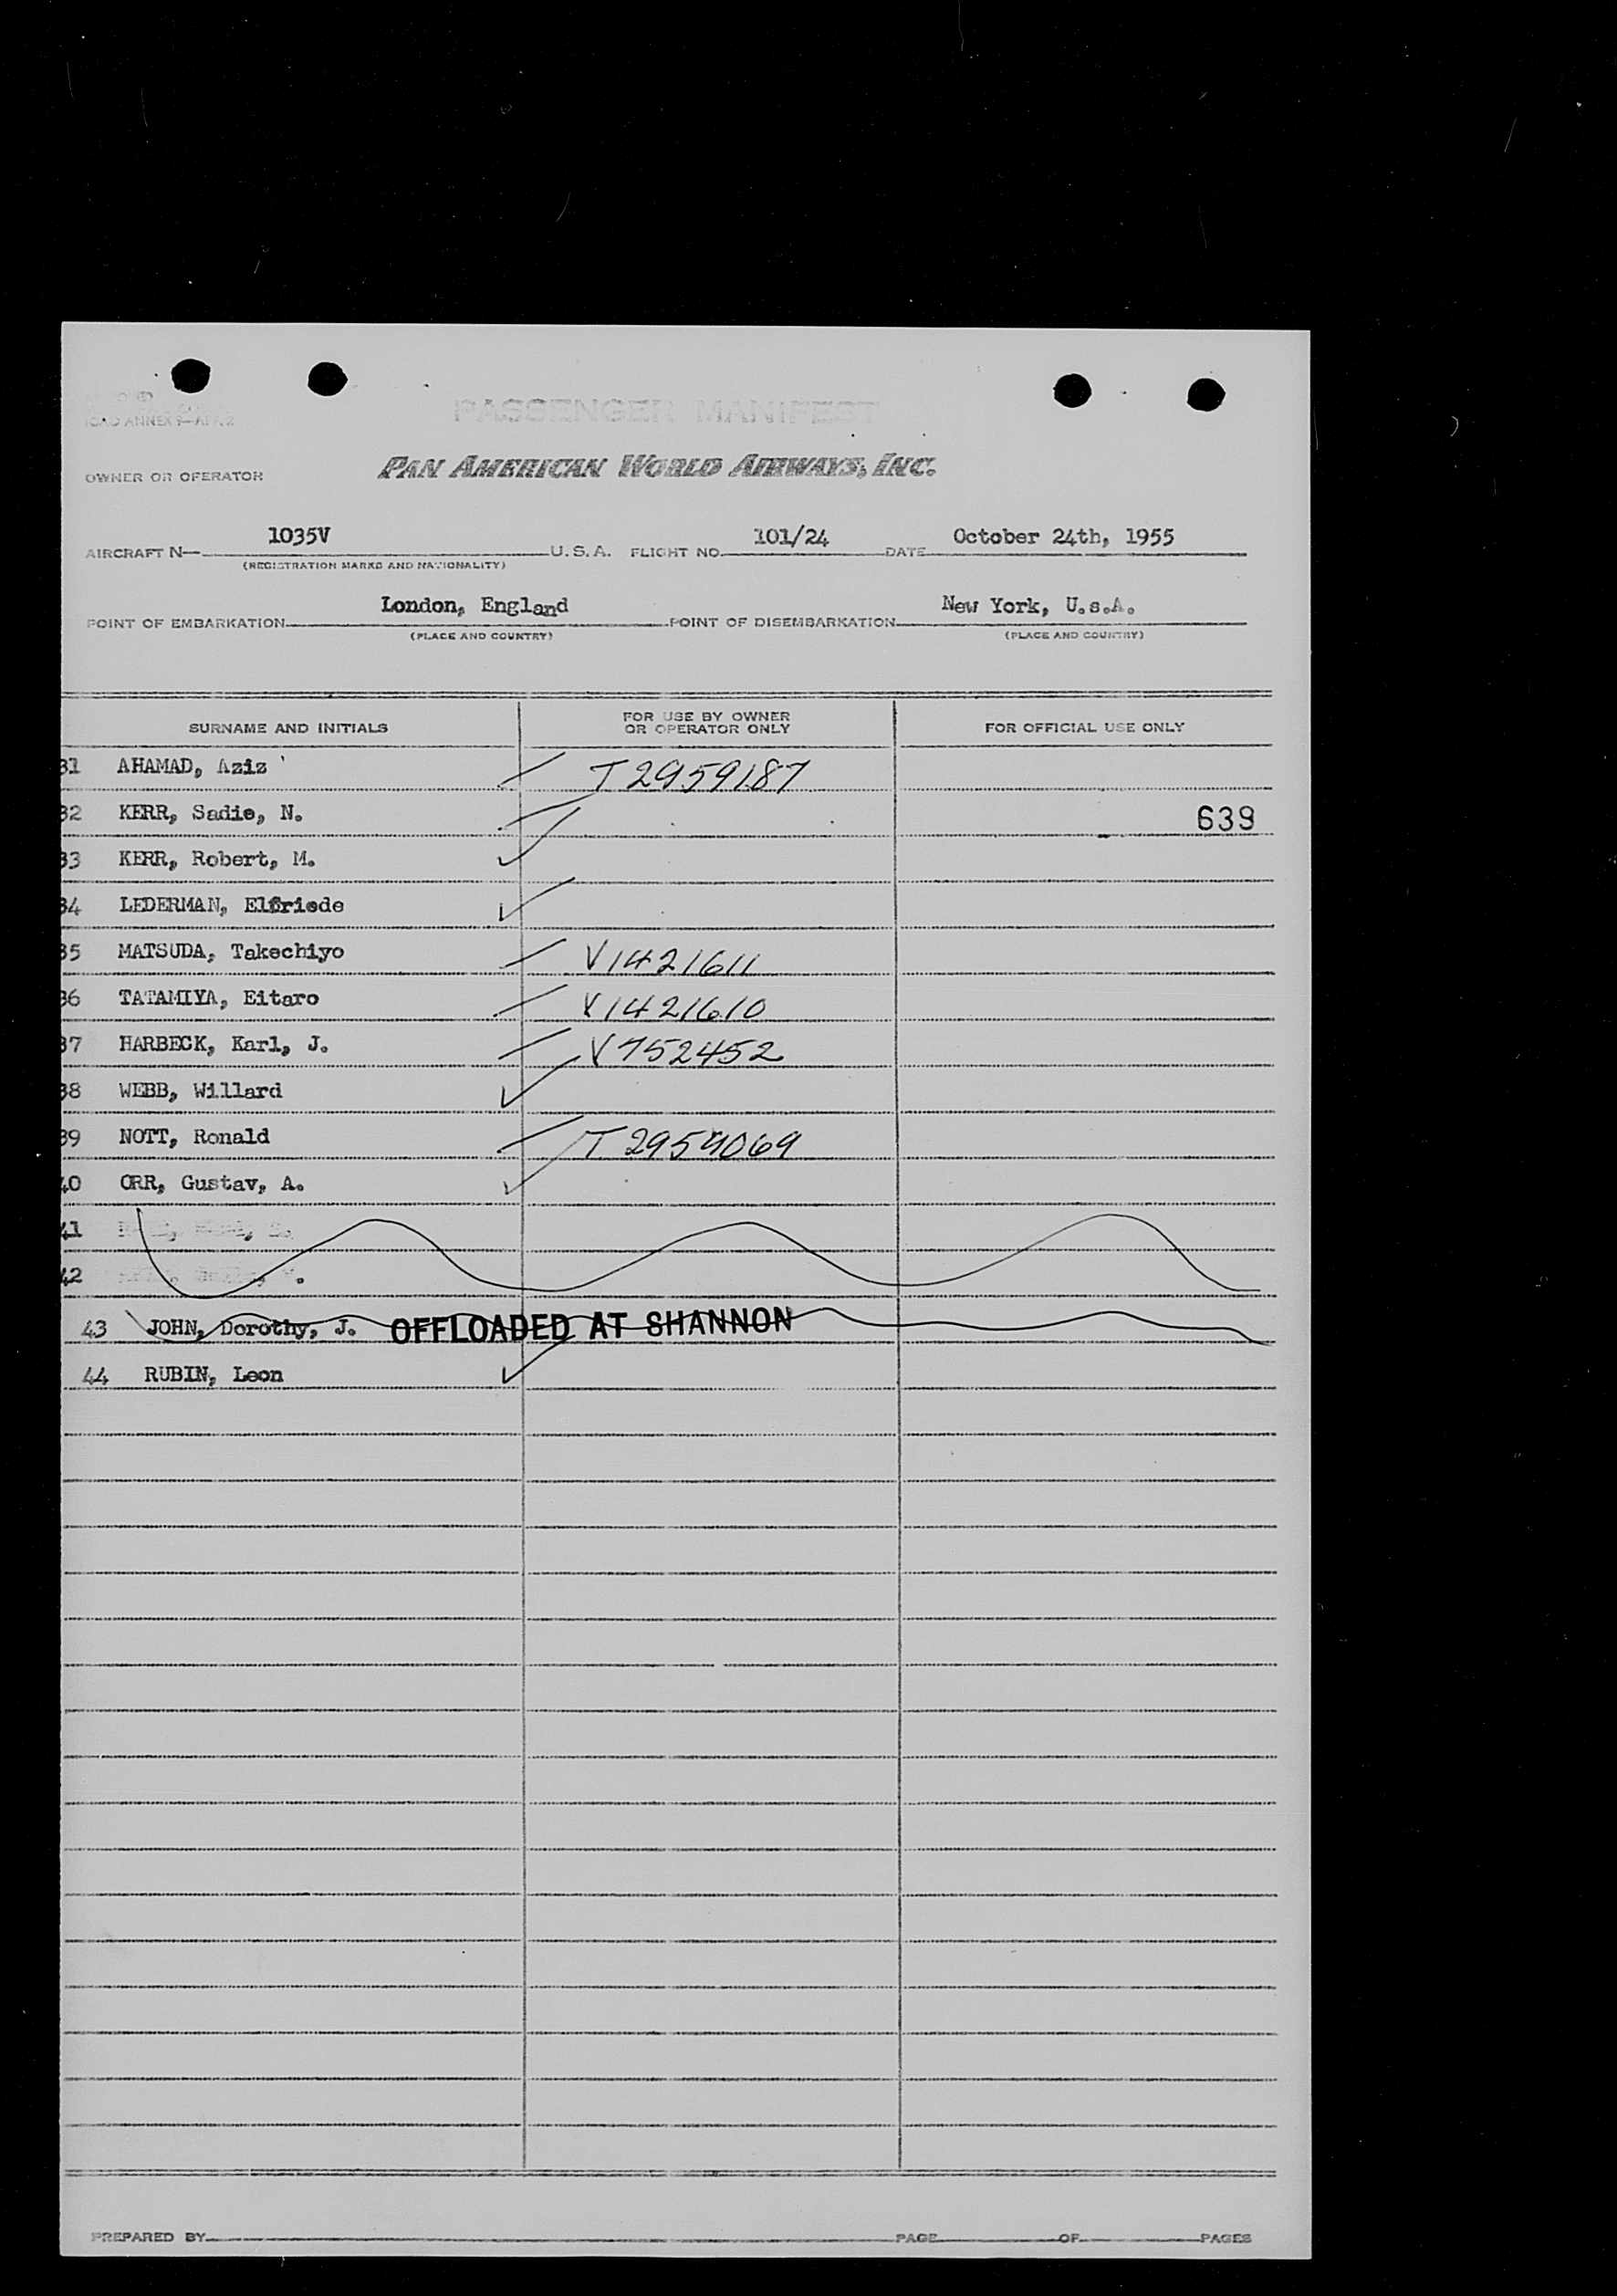 ICAO ANNEX 9—APP. 2
PASSENGER MANIFEST
OWNER OR OPERATOR PAN AMERICAN WORLD AIRWAYS, INC.
AIRCRAFT N— 1035V U.S.A. FLIGHT NO. 101/24 DATE October 24th, 1955
(REGISTRATION MARKS AND NATIONALITY)
POINT OF EMBARKATION London, England POINT OF DISEMBARKATION New York, U.s.A.
(PLACE AND COUNTRY) (PLACE AND COUNTRY)
SURNAME AND INITIALS FOR USE BY OWNER OR OPERATOR ONLY FOR OFFICIAL USE ONLY
31 AHAMAD, Aziz T2959187
32 KERR, Sadie, N. 639
33 KERR, Robert, M.
34 LEDERMAN, Elfriede
35 MATSUDA, Takechiyo V1421611
36 TATAMIYA, Eitaro V1421610
37 HARBECK, Karl, J. V752452
38 WEBB, Willard
39 NOTT, Ronald T2959069
40 ORR, Gustav, A.
41
42
43 JOHN, Dorothy, J. OFFLOADED AT SHANNON
44 RUBIN, Leon
PREPARED BY PAGE OF PAGES